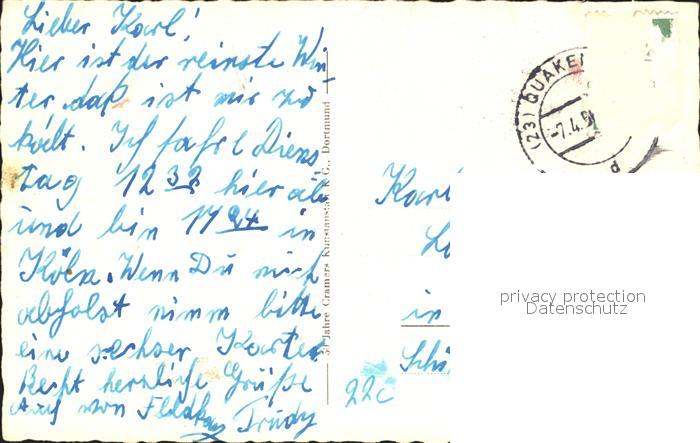 Lieber Karl!
Hier ist der reinste Win-
ter, daß ist mir zu
kalt. Ich fahre Diens
tag 12 32 hier ab
und bin 17 24 in
Köln. Wenn Du mich
abholst nimm bitte
eine sechser Karte.
Recht herzliche Grüße
auch von
Trudy
50 Jahre Cramers Kunstanstalt K.G., Dortmund
(23) QUAKE
-7.4.5
d
Karl
in
Schü
22c
privacy protection
Datenschutz